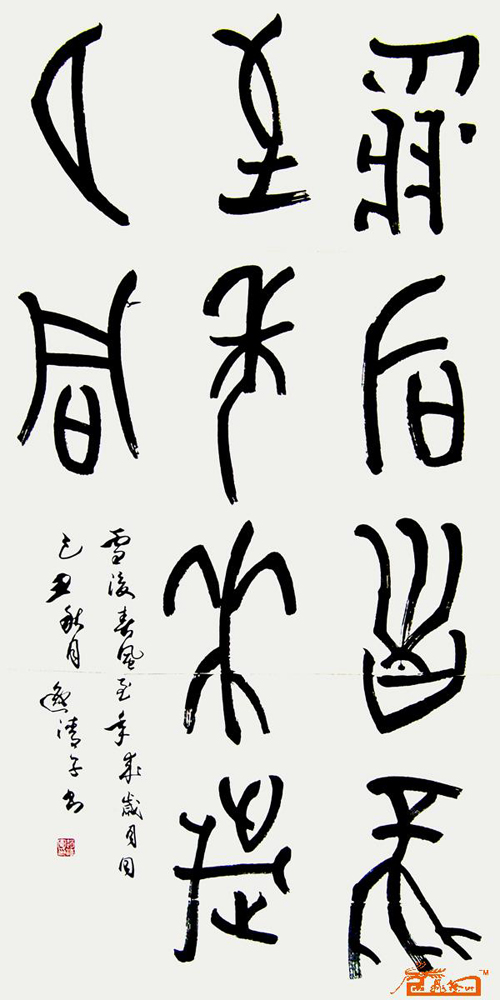 雪后春風
至年來歲
月同
雪後春風至年來歲月同
己丑秋月清子书